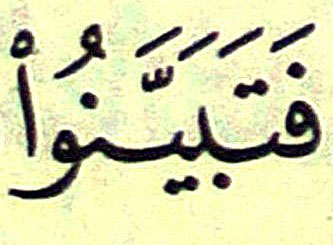 فَتَبَيَّنُوا۟